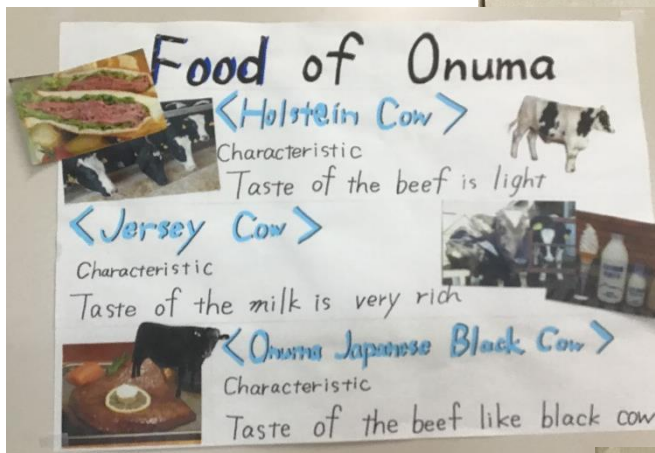 Food of Onuma
<Holstein Cow>
Characteristic
Taste of the beef is light
<Jersey Cow>
Characteristic
Taste of the milk is very rich
<Onuma Japanese Black Cow>
Characteristic
Taste of the beef like black cow